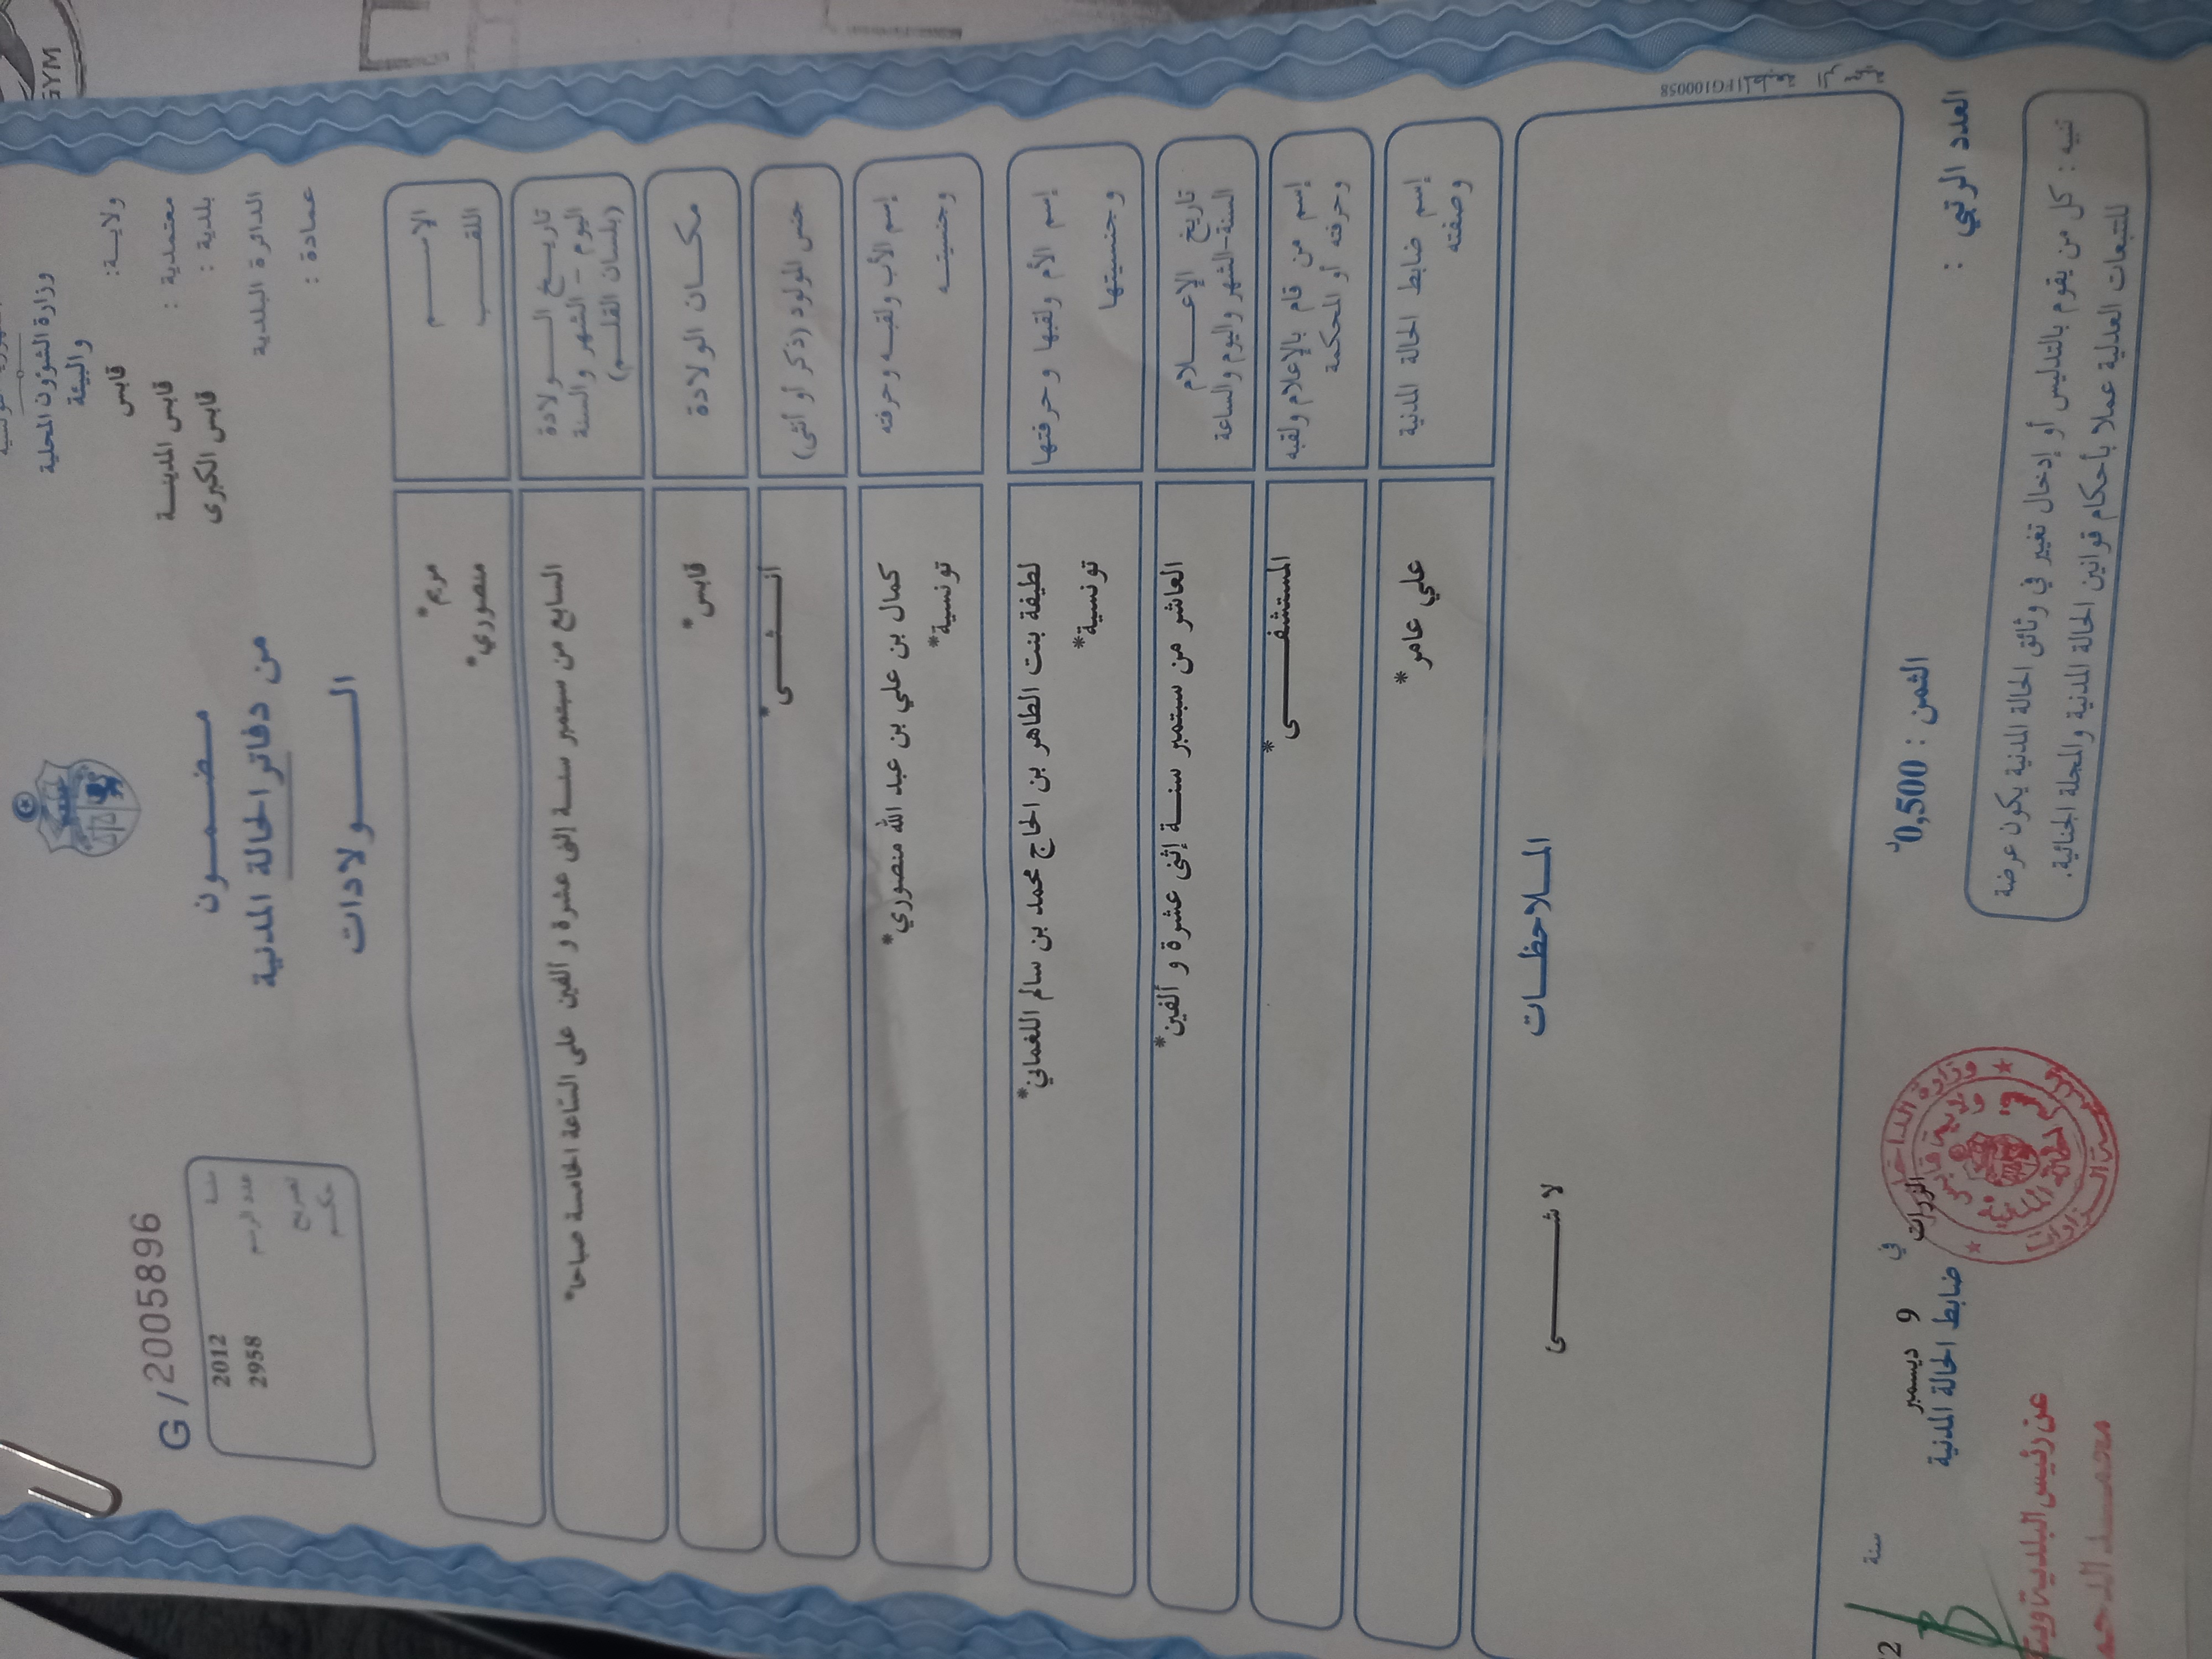 وزارة الشؤون المحلية
والبيئة
ولايـــة: قابس
معتمدية : قابس المدينــة
بلدية : قابس الكبرى
الدائرة البلدية
عمادة :
مـضـمــون
من دفاتر الحالة المدنية
الــــولادات
G / 20058896
سنة 2012
عدد الرسم 2958
تصريح
حكــم
الإســـــم مريم*
اللقــب منصوري*
تاريــخ الـــولادة
اليوم - الشهر والسنة
(بلسان القلــم)
السابع من سبتمبر سنــة إثنى عشرة و ألفين على الساعة الخامسة صباحا*
مكــان الولادة قابس*
جنس المولود (ذكر أو أنثى) أنـــثـــى*
إسم الأب ولقبــه وحرفته كمال بن علي بن عبد الله منصوري*
وجنسيتــه تونسية*
إسم الأم ولقبها وحرفتها لطيفة بنت الطاهر بن الحاج محمد بن سالم اللغماني*
وجنسيتها تونسية*
تاريخ الإعـــلام
السنة-الشهر واليوم والساعة
العاشر من سبتمبر سنــة إثنى عشرة و ألفين*
إسم من قام بالإعلام ولقبه
وحرفته أو المحكمة
المستشفـــــى*
إسم ضابط الحالة المدنية علي عامر*
وصفته
المــلاحظــات
لا شـــــى
المطبعة الرسمية FG100058
العدد الرتبي :
الثمن : 0,500د
في الزرات 9 ديسمبر سنة
ضابط الحالة المدنية
وزارة الداخلية
ولاية قابس
عن رئيس البلدية
تنبيه : كل من يقوم بالتدليس أو إدخال تغيير في وثائق الحالة المدنية يكون عرضة
للتتبعات العدلية عملا بأحكام قوانين الحالة المدنية والمجلة الجنائية.
GYM